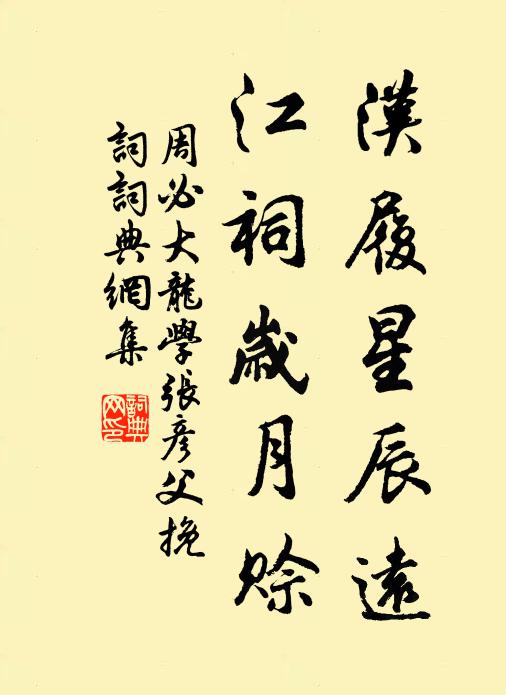 漢履星辰遠
江祠歲月賒
周必大龍學張彥父挽
詞詞典網集
詞典網印